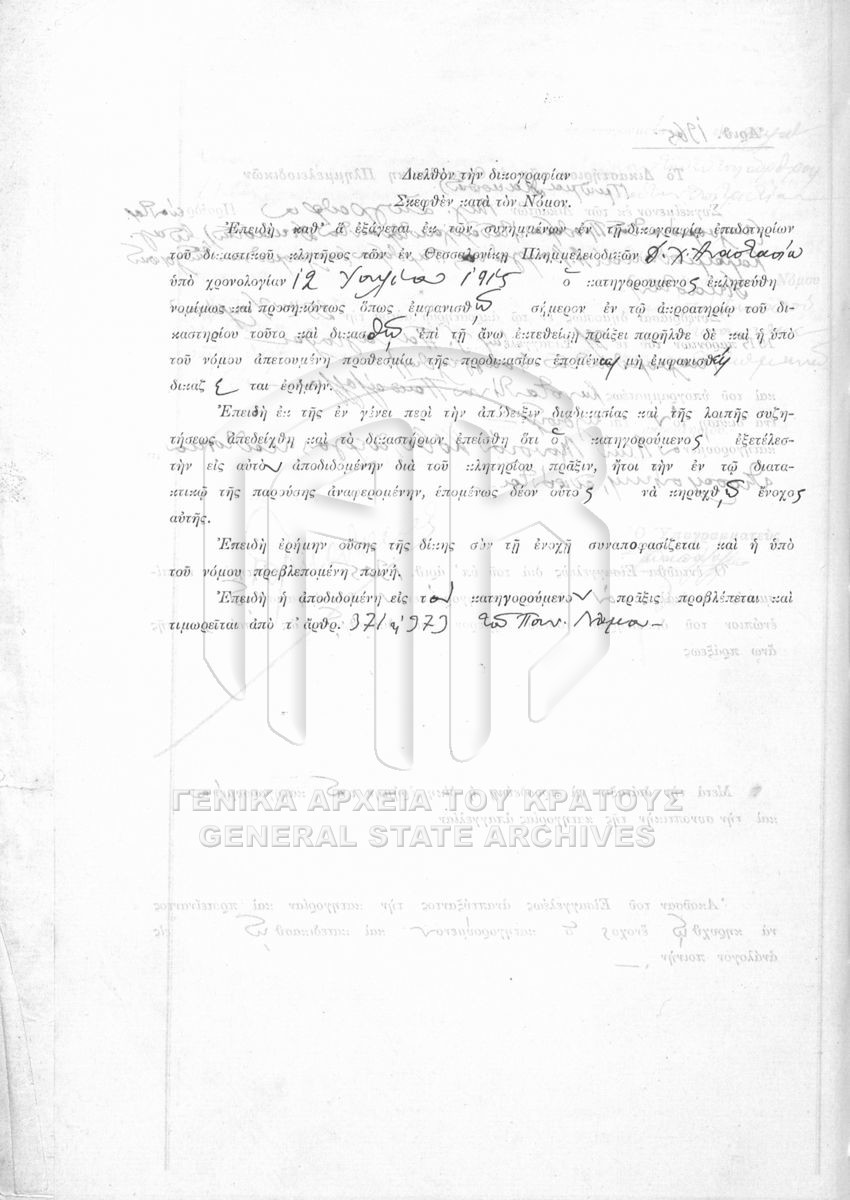 Διελθὸν τὴν δικογραφίαν
Σκεφθὲν κατὰ τὸν Νόμον.
Ἐπειδὴ καθ' ἃ ἐξάγεται ἐκ τῶν συνημμένων ἐν τῇ δικογραφίᾳ ἐπιδοτηρίων
τοῦ δικαστικοῦ κλητῆρος τῶν ἐν Θεσσαλονίκῃ Πλημμελειοδικῶν Χ. Ἀναστασίου
ὑπὸ χρονολογίαν 12 Ἰουλίου 1915 ὁ κατηγορούμενος ἐκλητεύθη
νομίμως καὶ προσηκόντως ὅπως ἐμφανισθῇ σήμερον ἐν τῷ ἀκροατηρίῳ τοῦ δι-
καστηρίου τοῦτο καὶ δικασθῇ ἐπὶ τῇ ἄνω ἐκτεθείσῃ πράξει παρῆλθε δὲ καὶ ἡ ὑπὸ
τοῦ νόμου ἀπετουμένη προθεσμία τῆς προδικασίας ἑπομένως μὴ ἐμφανισθεὶς
δικάζεται ἐρήμην.
Ἐπειδὴ ἐκ τῆς ἐν γένει περὶ τὴν ἀπόδειξιν διαδικασίας καὶ τῆς λοιπῆς συζη-
τήσεως ἀπεδείχθη καὶ τὸ δικαστήριον ἐπείσθη ὅτι ὁ κατηγορούμενος ἐξετέλεσ-
τὴν εἰς αὐτὸν ἀποδιδομένην διὰ τοῦ κλητηρίου πρᾶξιν, ἤτοι τὴν ἐν τῷ διατα-
κτικῷ τῆς παρούσης ἀναφερομένην, ἑπομένως δέον οὗτος νὰ κηρυχθῇ ἔνοχος
αὐτῆς.
Ἐπειδὴ ἐρήμην οὔσης τῆς δίκης σὺν τῇ ἐνοχῇ συναποφασίζεται καὶ ἡ ὑπὸ
τοῦ νόμου προβλεπομένη ποινή.
Ἐπειδὴ ἡ ἀποδιδομένη εἰς τὸν κατηγορούμενον πρᾶξις προβλέπεται καὶ
τιμωρεῖται ἀπὸ τ' ἄρθρ. 371 καὶ 373 τοῦ Ποιν. Νόμου
ΓΕΝΙΚΑ ΑΡΧΕΙΑ ΤΟΥ ΚΡΑΤΟΥΣ
GENERAL STATE ARCHIVES